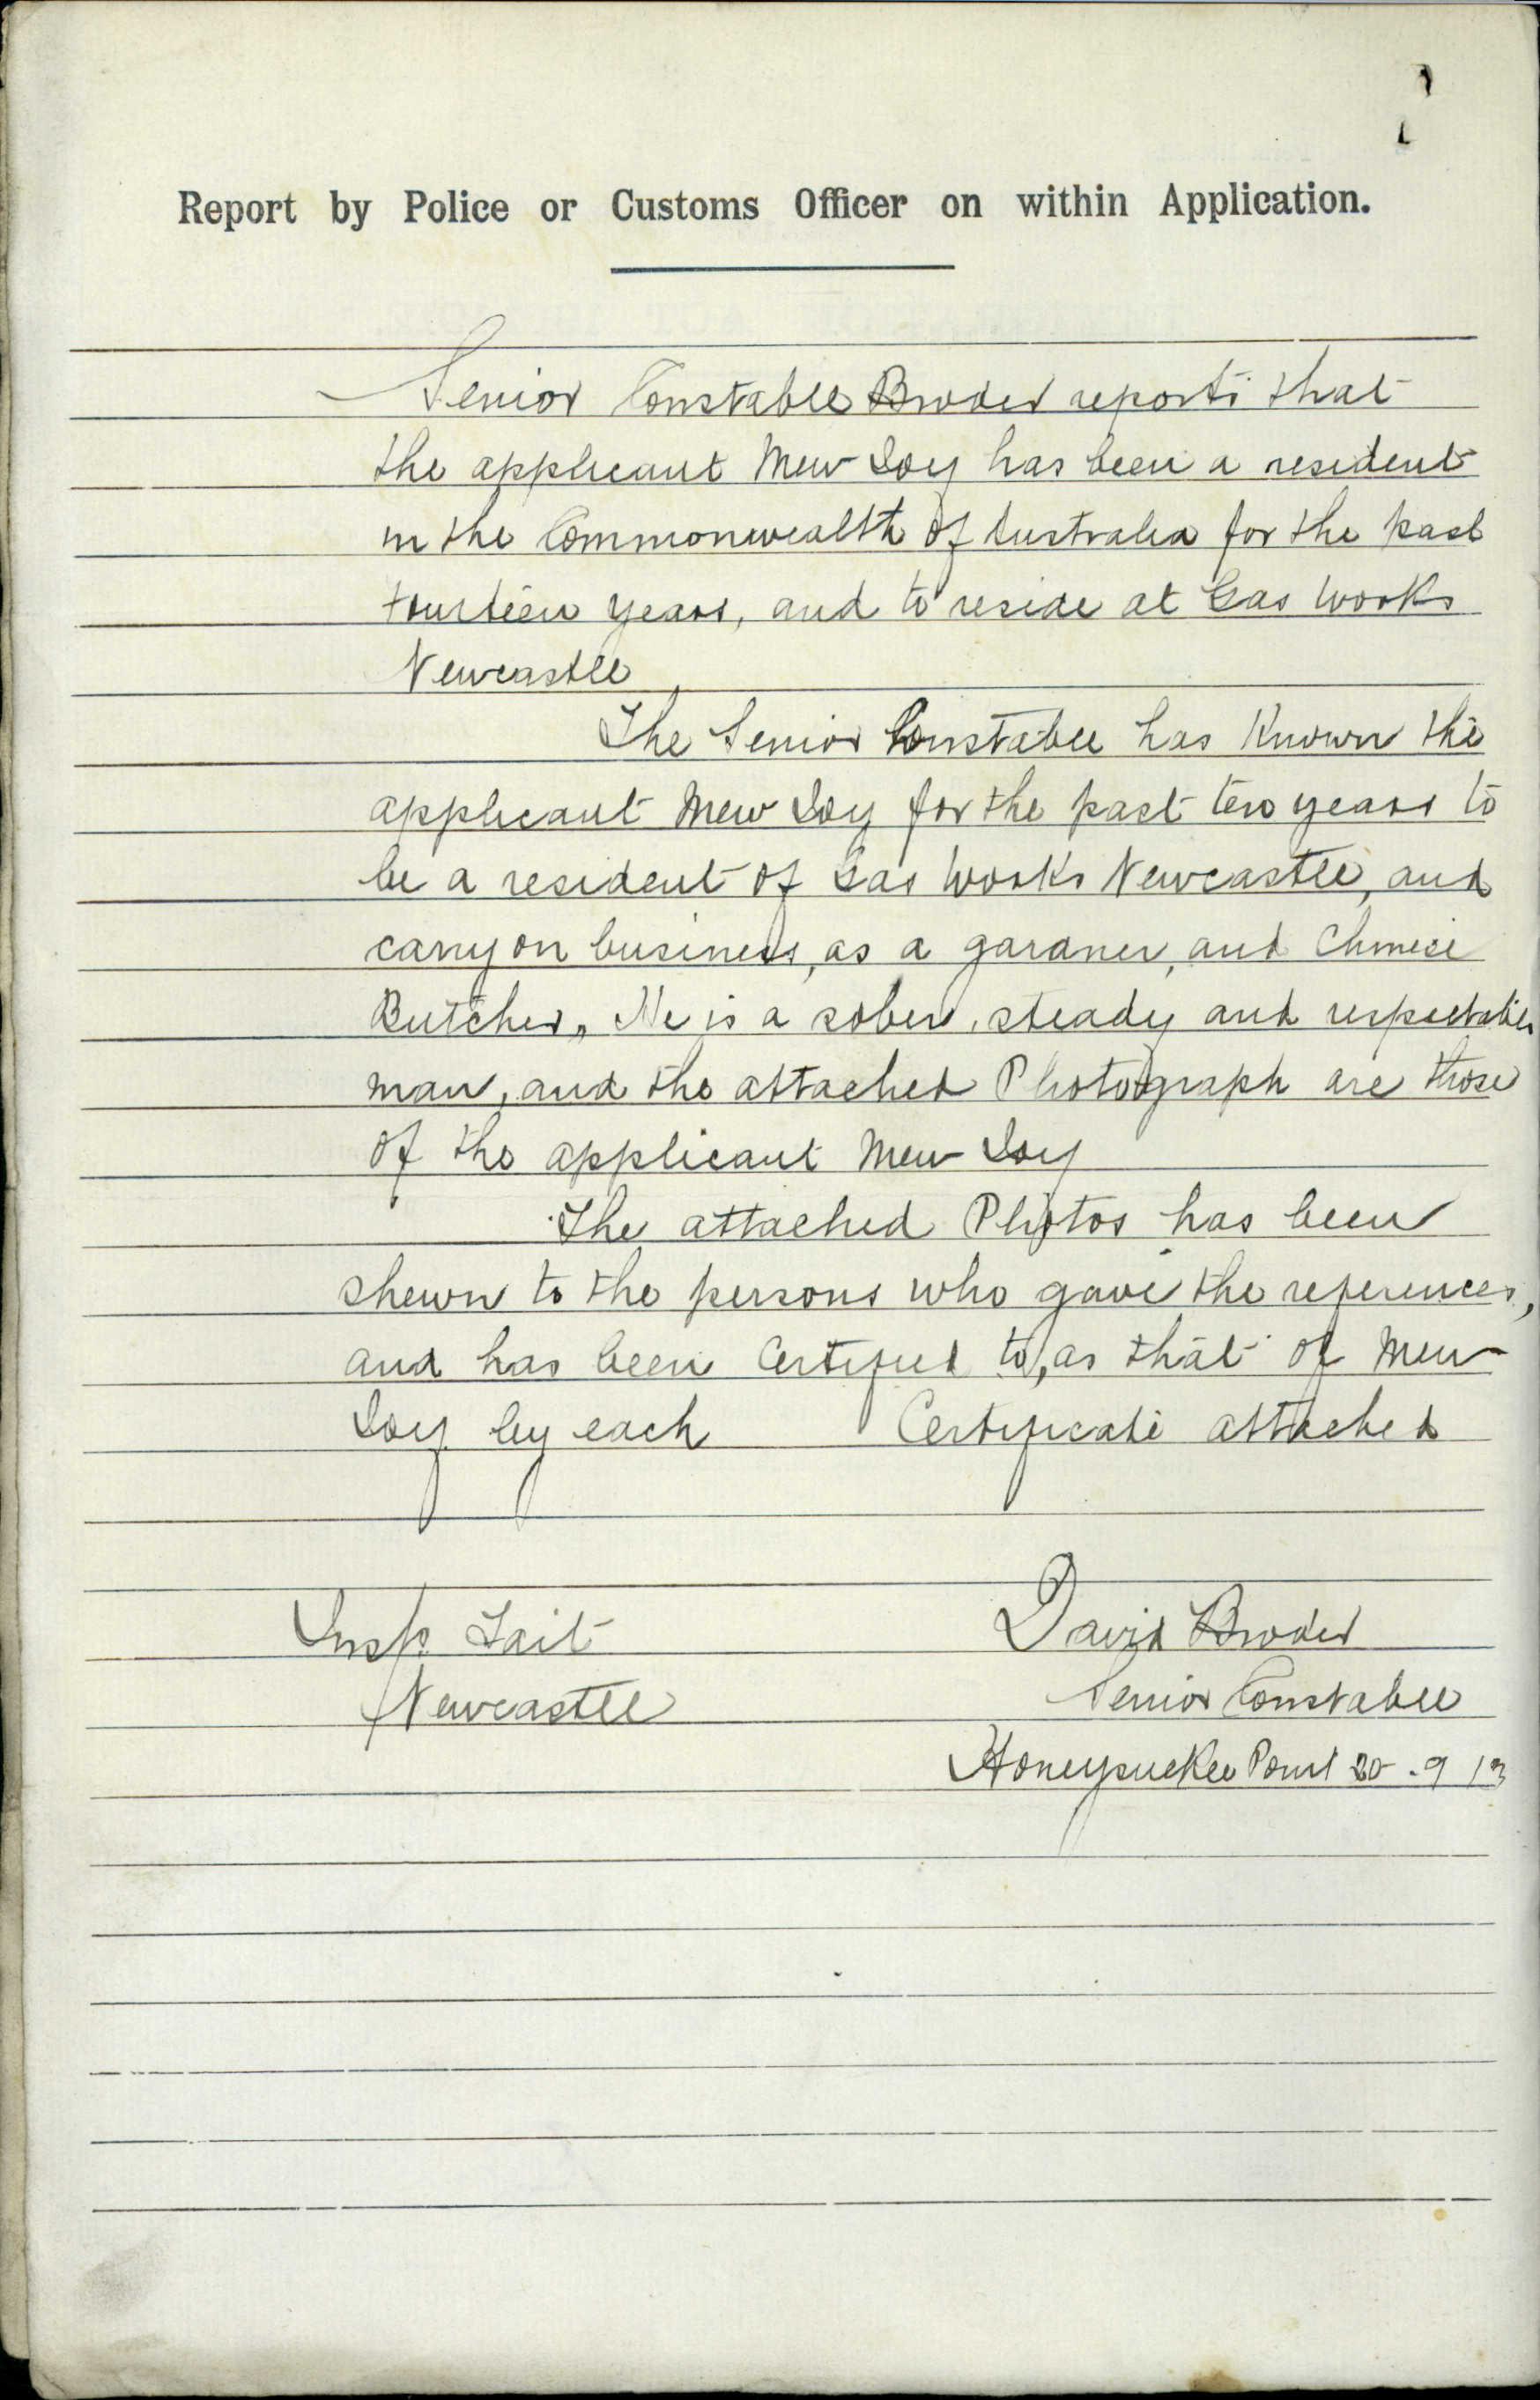 Report by Police or Customs Officer on within Application.
Senior Constable Broder reports that
the applicant Mew Soy has been a resident
in the Commonwealth of Australia for the past
fourteen years, and to reside at Gas Works
Newcastle
The Senior Constable has known the
applicant Mew Soy for the past ten years to
be a resident of Gas Works Newcastle, and
carry on business, as a gardner, and Chinese
Butcher, He is a sober, steady and respectable
man, and the attached Photograph are those
of the applicant Mew Soy
The attached Photos has been
shewn to the persons who gave the references,
and has been Certified to, as that of Mew
Soy by each Certificate attached
Insp Tait
Newcastle
David Broder
Senior Constable
Honeysuckle Point 20-9 13